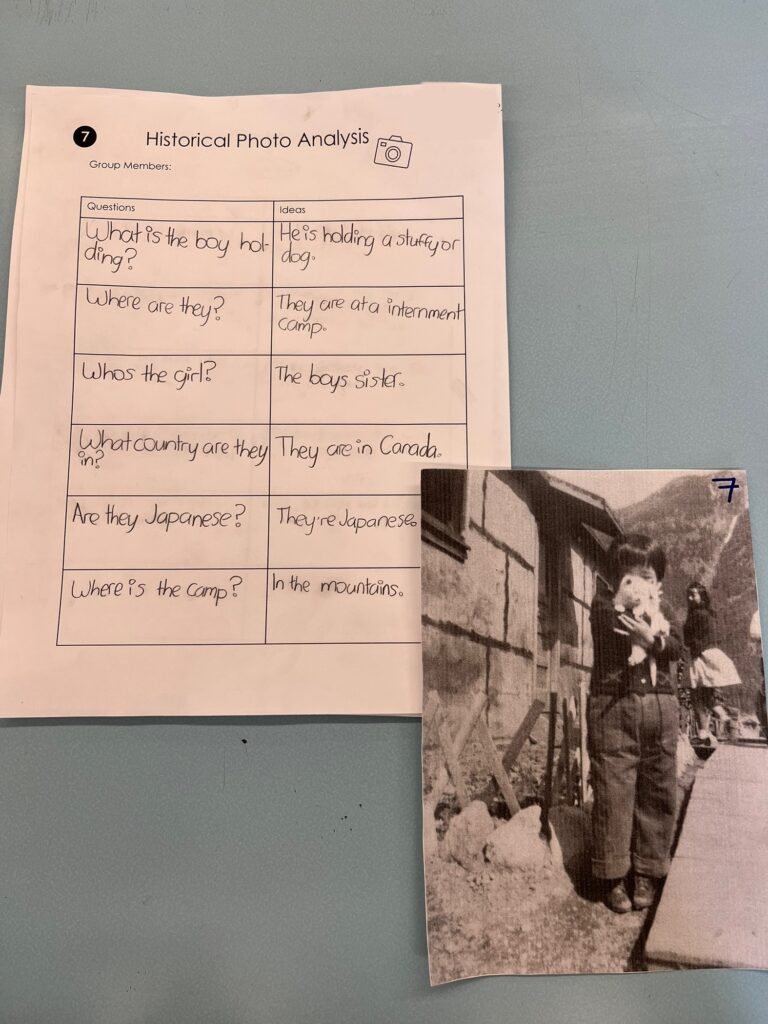 7
Historical Photo Analysis
Group Members:
Questions
Ideas
What is the boy hol-
ding?
He is holding a stuffy or
dog.
Where are they?
They are at a internment
camp.
Whos the girl?
The boys sister.
What country are they
in?
They are in Canada.
Are they Japanese?
They're Japanese.
Where is the camp?
In the mountains.
7